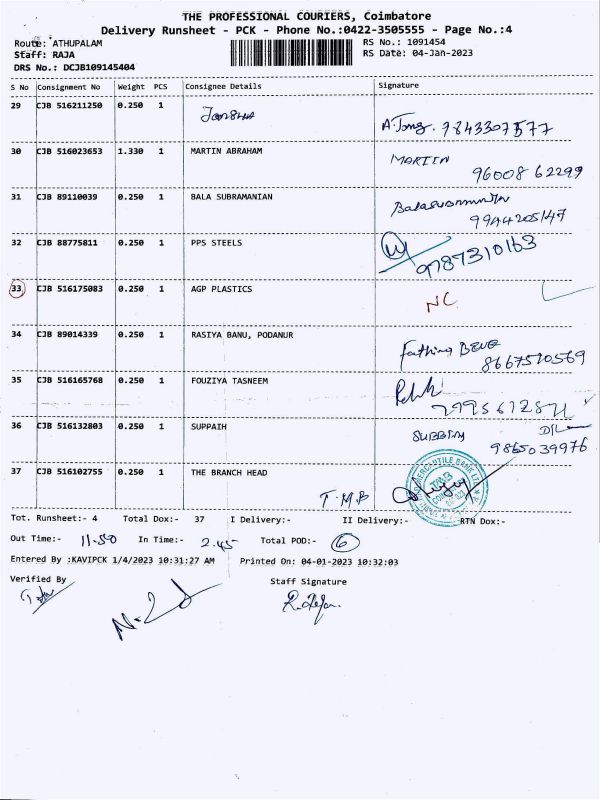 THE PROFESSIONAL COURIERS, Coimbatore
Delivery Runsheet - PCK - Phone No.:0422-3505555 - Page No.:4
Route: ATHUPALAM RS No.: 1091454
Staff: RAJA RS Date: 04-Jan-2023
DRS No.: DCJB109145404
S No Consignment No Weight PCS Consignee Details Signature
29 CJB 516211250 0.250 1
A. Tomy. 7843307577
30 CJB 516023653 1.330 1 MARTIN ABRAHAM MARTIN
96008 62299
31 CJB 89110039 0.250 1 BALA SUBRAMANIAN Balasubramanian
9944205147
32 CJB 88775811 0.250 1 PPS STEELS
9787310163
33 CJB 516175083 0.250 1 AGP PLASTICS NC
34 CJB 89014339 0.250 1 RASIYA BANU, PODANUR
8667510569
35 CJB 516165768 0.250 1 FOUZIYA TASNEEM
36 CJB 516132803 0.250 1 SUPPAIH
9865039976
37 CJB 516102755 0.250 1 THE BRANCH HEAD
T.M.B
MERCANTILE BANK LTD
TMB
Tot. Runsheet:- 4 Total Dox:- 37 I Delivery:- II Delivery:- RTN Dox:-
Out Time:- 11.50 In Time:- 2.45 Total POD:- 6
Entered By :KAVIPCK 1/4/2023 10:31:27 AM Printed On: 04-01-2023 10:32:03
Verified By Staff Signature